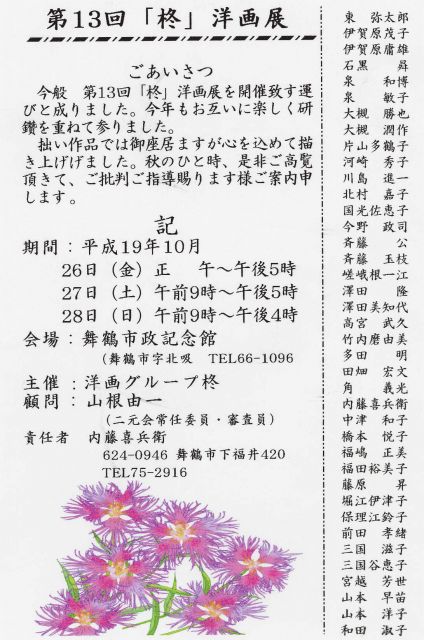 第13回「柊」洋画展
ごあいさつ
今般　第13回「柊」洋画展を開催致す運
びと成りました。今年もお互いに楽しく研
鑽を重ねて参りました。
拙い作品では御座居ますが心を込めて描
き上げました。秋のひと時、是非ご高覧
頂きて、ご批判ご指導賜ります様ご案内申
します。
記
期間：平成19年10月
26日（金）正　午～午後5時
27日（土）午前9時～午後5時
28日（日）午前9時～午後4時
会場：舞鶴市政記念館
（舞鶴市字北吸　TEL66-1096
主催：洋画グループ柊
顧問：山根由一
（二元会常任委員・審査員）
責任者　内藤喜兵衛
624-0946 舞鶴市下福井420
TEL75-2916
東　弥太郎
伊賀原茂子
伊賀原庸雄
石黒　昇
泉　和博
泉　敏子
大槻　勝也
大槻　潤作
片山多鶴子
河崎　秀子
川島　進一
北村　嘉子
国光佐恵子
今野　政司
斉藤　公
斉藤　玉枝
嵯峨根一江
澤田　隆
澤田美知代
高宮　武久
竹内磨由美
多田　明
田畑　宏文
角　義光
内藤喜兵衛
中津　和子
橋本　悦子
福嶋　正美
福田裕美子
藤原　昇
堀江伊津子
保理江鈴子
前田　孝緒
三国　滋子
三国谷恵子
宮越　芳世
山本　早苗
山本　洋子
和田　淑子